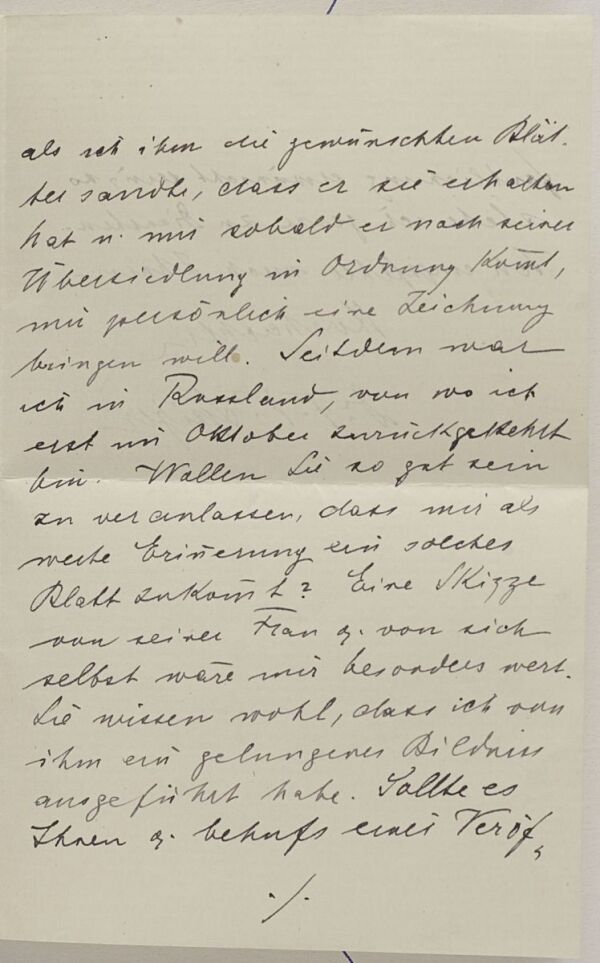 als ich ihm die gewünschten Blät-
ter sandte, dass er sie erhalten
hat u. mir sobald er nach seiner
Übersiedlung in Ordnung kom̅t,
mir persönlich eine Zeichnung
bringen will. Seitdem war
ich in Russland, von wo ich
erst im Oktober zurückgekehrt
bin. Wollen Sie so gut sein
zu veranlassen, dass mir als
werte Erin̅erung ein solches
Blatt zukom̅t? Eine Skizze
von seiner Frau u. von sich
selbst wäre mir besonders wert.
Sie wissen wohl, dass ich von
ihm ein gelungenes Bildniss
ausgeführt habe. Sollte es
Ihnen behufs einer Veröf-
./.